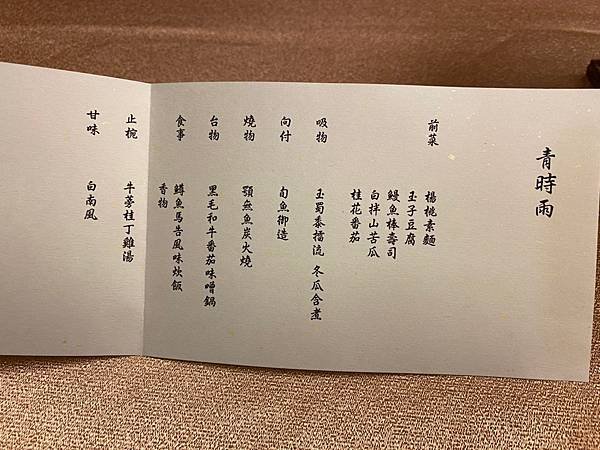 青時雨
前菜
楊桃素麵
玉子豆腐
鰻魚棒壽司
白拌山苦瓜
桂花番茄
吸物
玉蜀黍擂流 冬瓜含煮
向付
旬魚御造
燒物
顎無魚炭火燒
台物
黑毛和牛番茄味噌鍋
食事
鱒魚馬告風味炊飯
香物
止椀
牛蒡桂丁雞湯
甘味
白南風